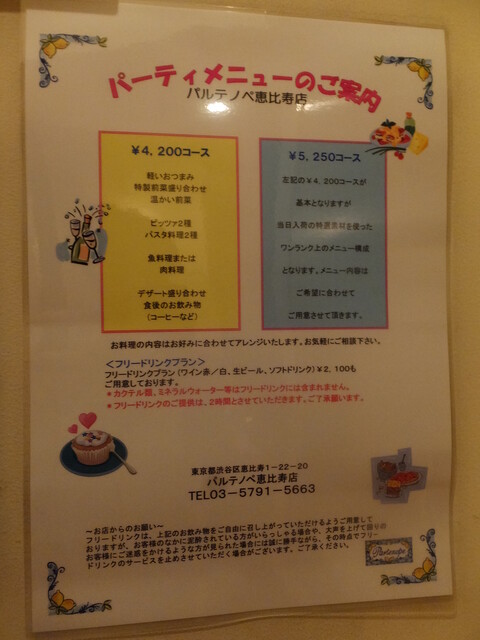 パーティメニューのご案内
パルテノペ恵比寿店
￥4，200コース
軽いおつまみ
特製前菜盛り合わせ
温かい前菜
ピッツァ2種
パスタ料理2種
魚料理または
肉料理
デザート盛り合わせ
食後のお飲み物
（コーヒーなど）
￥5，250コース
左記の￥4，200コースが
基本となりますが
当日入荷の特選素材を使った
ワンランク上のメニュー構成
となります。メニュー内容は
ご希望に合わせて
ご用意させて頂きます。
お料理の内容はお好みに合わせてアレンジいたします。お気軽にご相談下さい。
＜フリードリンクプラン＞
フリードリンクプラン（ワイン赤／白、生ビール、ソフトドリンク）￥2，100も
ご用意しております。
＊カクテル類、ミネラルウォーター等はフリードリンクには含まれません。
＊フリードリンクのご提供は、2時間とさせていただきます。ご了承願います。
東京都渋谷区恵比寿1－22－20
パルテノペ恵比寿店
TEL03－5791－5663
～お店からのお願い～
フリードリンクは、上記のお飲み物をご自由に召し上がっていただけるようご用意して
おりますが、お客様のなかに泥酔されている方がいらっしゃる場合や、大声を上げて周りの
お客様にご迷惑をかけるような方が見られた場合には誠に勝手ながら、その時点でフリー
ドリンクのサービスを止めさせていただく場合がございます。ご了承ください。
Partenope